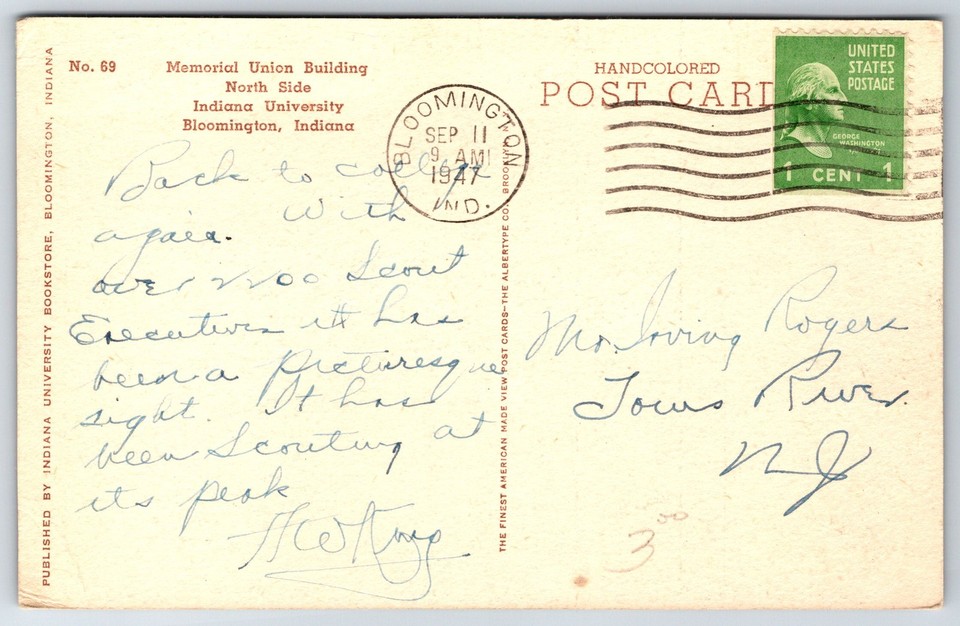 No. 69
Memorial Union Building
North Side
Indiana University
Bloomington, Indiana
HANDCOLORED
POST CARD
UNITED
STATES
POSTAGE
GEORGE
WASHINGTON
1 CENT 1
BLOOMINGTON
SEP 11
9 AM
1947
IND.
Back to college
again. With
over 2200 Scout
Executives it has
been a picturesque
sight. It has
been Scouting at
its peak
HW
Mr. Irving Rogers
Toms River.
N J
3.00
PUBLISHED BY INDIANA UNIVERSITY BOOKSTORE, BLOOMINGTON, INDIANA
THE FINEST AMERICAN MADE VIEW POST CARDS—THE ALBERTYPE CO., BROOKLYN